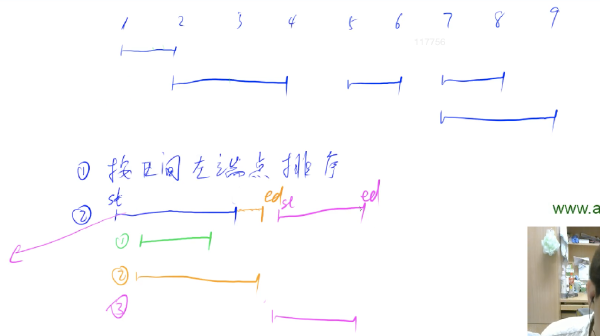 1 2 3 4 5 6 7 8 9
117756
① 按区间左端点排序
st ed st ed
②
①
②
③
www.a